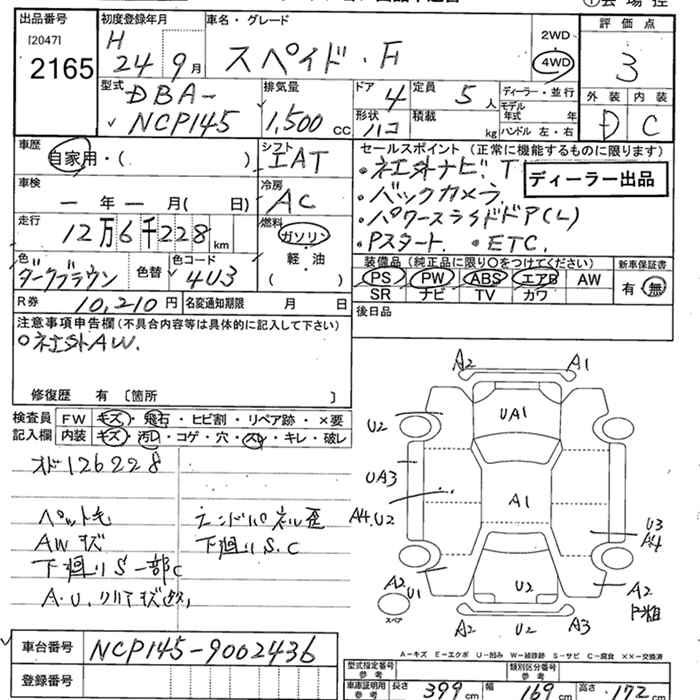 出品番号
[2047]
2165
初度登録年月
H
24 9月
車名・グレード
スペイド・F
2WD
4WD
評価点
3
外装 内装
D C
型式
DBA-
NCP145
排気量
1,500 cc
ドア 4
形状 ハコ
定員 5 人
積載 kg
ディーラー・並行
モデル年式 年
ハンドル 左・右
車歴
自家用・( )
シフト
IAT
車検
ー年ー月( 日)
冷房
AC
走行
12万6千228km
燃料
ガソリン
軽・油
( )
色
ダークブラウン
色替
色コード
4U3
R券 10,210円
名変通知期限 月 日
セールスポイント (正常に機能するものに限ります)
・社外ナビ.T
・バックカメラ.
・パワースライドドア(L)
・Pスタート. ・ETC.
ディーラー出品
装備品 (純正品に限り〇をつけてください)
PS PW ABS エアB AW
SR ナビ TV カワ
新車保証書
有・無
後日品
注意事項申告欄(不具合内容等は具体的に記入して下さい)
○社外AW.
修復歴 有〔箇所 〕
検査員
記入欄
FW キズ・飛石・ヒビ割・リペア跡・×要
内装 キズ・汚レ・コゲ・穴・スレ・キレ・破レ
オド126228
ペット毛
AWキズ
下廻りS一部C
エンドパネル歪
下廻りS.C
A2 A1
UA1
U2
UA3
A4.U2
A1
U3
A4
A2
U1
スペア
U2
A2
A2 U2 A3
A-キズ E-エクボ U-凹み W-補修跡 S-サビ C-腐食 ××-交換済
車台番号 NCP145-9002436
登録番号
型式指定番号
参考
類別区分番号
参考
車庫証明用
参考
長さ 399 cm
幅 169 cm
高さ 172 cm